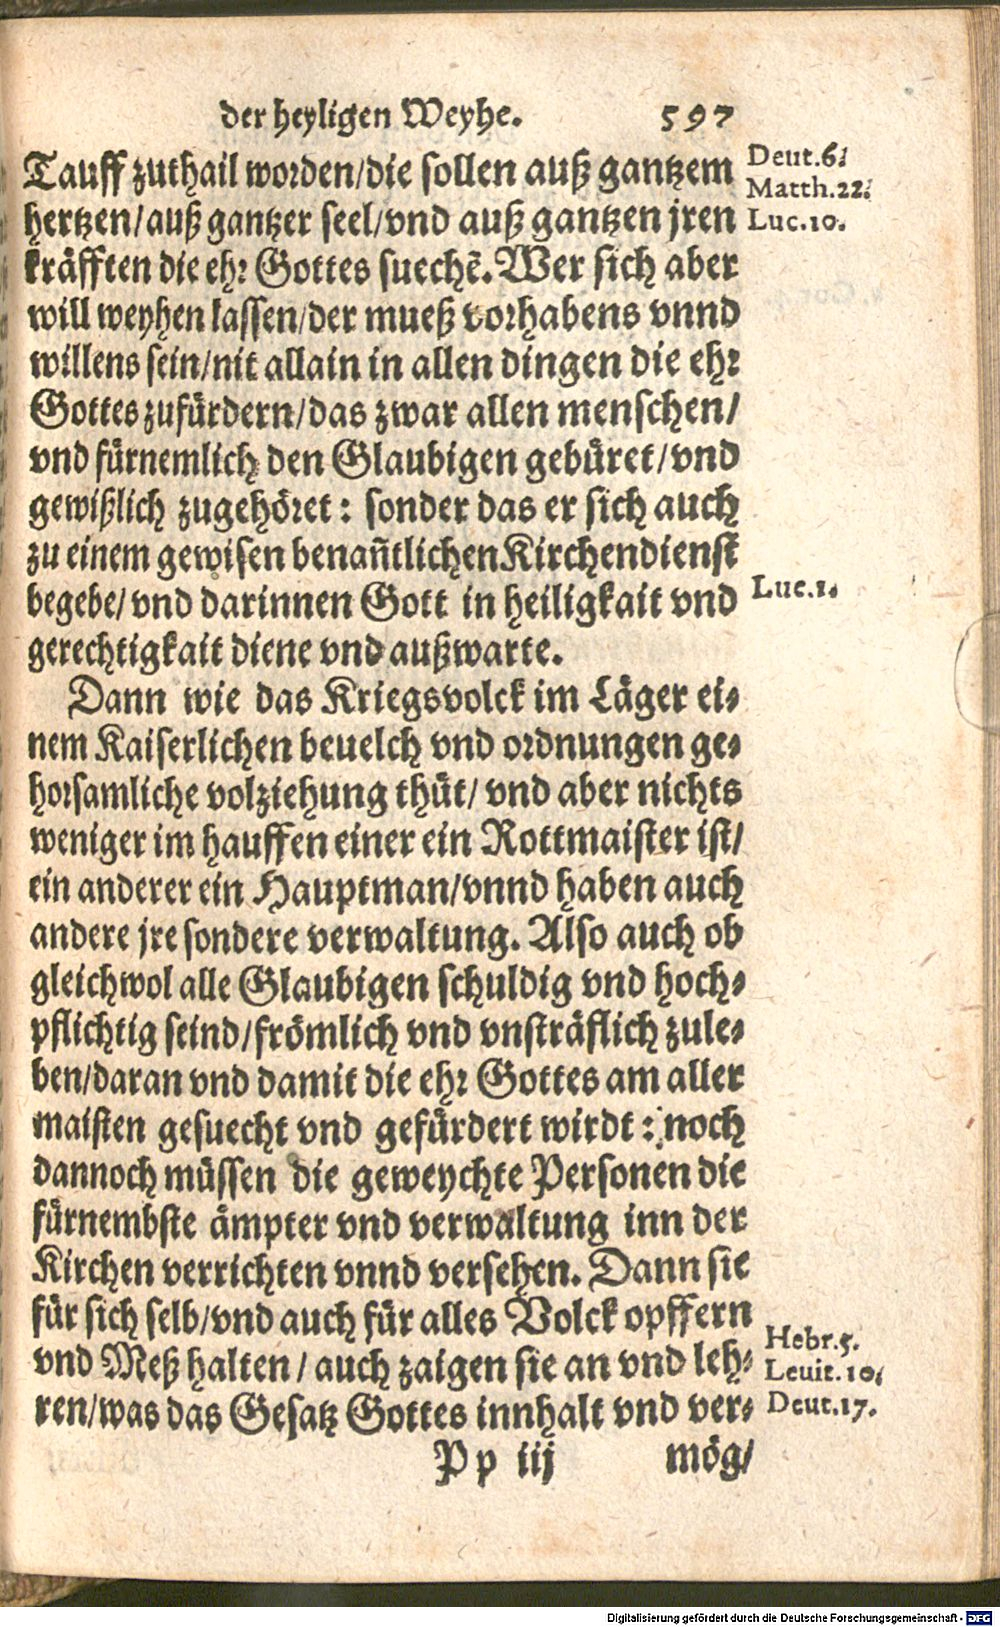 der heyligen Weyhe. 597
Tauff zuthail worden/die sollen auß gantzem
Deut.6.
Matth.22.
hertzen/auß gantzer seel/vnd auß gantzen jren
Luc.10.
kräfften die ehr Gottes suechẽ. Wer sich aber
will weyhen lassen/der mueß vorhabens vnnd
willens sein/nit allain in allen dingen die ehr
Gottes zufürdern/das zwar allen menschen/
vnd fürnemlich den Glaubigen gebüret/vnd
gewißlich zugehöret: sonder das er sich auch
zu einem gewisen benañtlichen Kirchendienst
begebe/vnd darinnen Gott in heiligkait vnd
Luc.1.
gerechtigkait diene vnd außwarte.
Dann wie das Kriegsvolck im Läger ei-
nem Kaiserlichen beuelch vnd ordnungen ge-
horsamliche volziehung thüt/vnd aber nichts
weniger im hauffen einer ein Rottmaister ist/
ein anderer ein Hauptman/vnnd haben auch
andere jre sondere verwaltung. Also auch ob
gleichwol alle Glaubigen schuldig vnd hoch-
pflichtig seind/frömlich vnd vnsträflich zule-
ben/daran vnd damit die ehr Gottes am aller
maisten gesuecht vnd gefürdert wirdt: noch
dannoch müssen die geweychte Personen die
fürnembste ämpter vnd verwaltung inn der
Kirchen verrichten vnnd versehen. Dann sie
für sich selb/vnd auch für alles Volck opffern
Hebr.5.
vnd Meß halten/auch zaigen sie an vnd leh-
Leuit.10.
ren/was das Gesatz Gottes innhalt vnd ver-
Deut.17.
Pp iij mög/
Digitalisierung gefördert durch die Deutsche Forschungsgemeinschaft - DFG